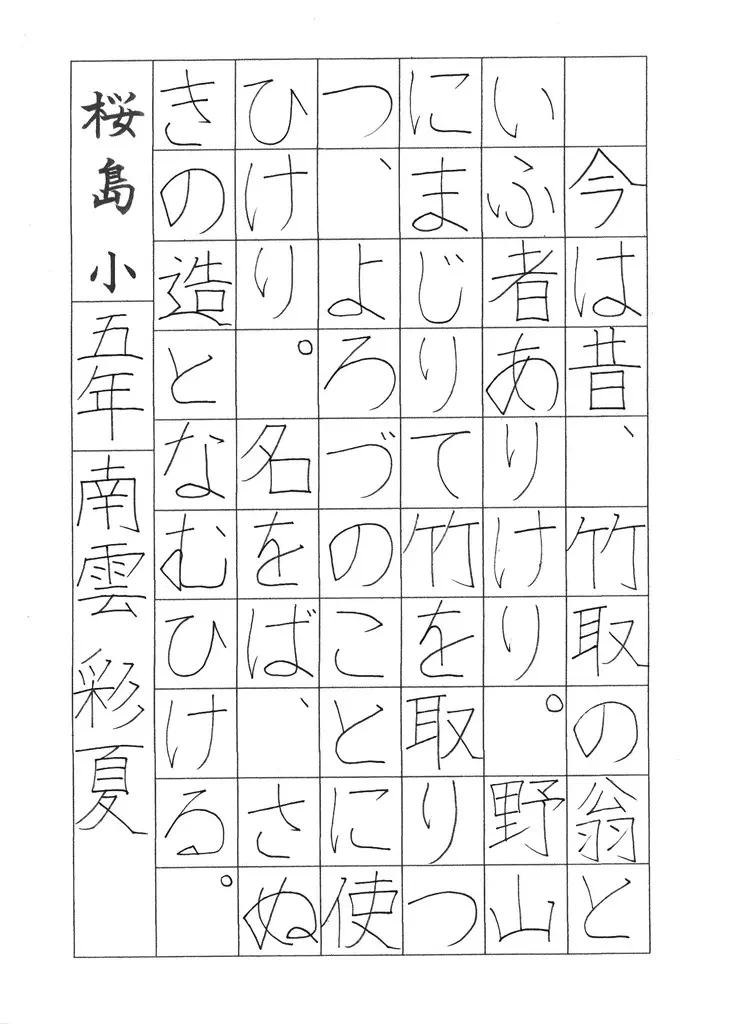 今は昔、竹取の翁と
いふ者ありけり。野山
にまじりて竹を取りつ
つ、よろづのことに使
ひけり。名をば、さぬ
きの造となむひける。
桜島小 五年 南雲 彩夏